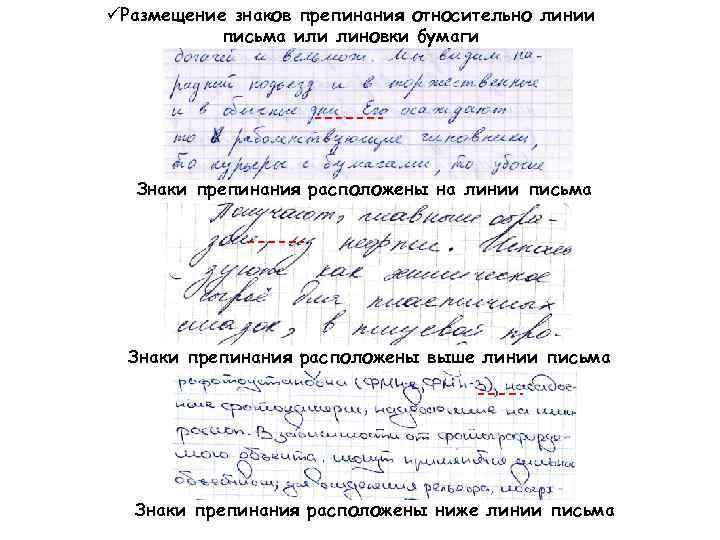 ✓Размещение знаков препинания относительно линии
письма или линовки бумаги
богачей и вельмож. Мы видим па-
радный подъезд и в торжественные
и в обычные дни Его осаждают
то раболепствующие чиновники,
то курьеры с бумагами, то убогие
Знаки препинания расположены на линии письма
Получают, главным обра-
зом, из нефти. Исполь
зуются как химическое
сырьё для пластичных
смазок, в пищевой про-
Знаки препинания расположены выше линии письма
фотоустановки
ные фотокамеры, на
роскоп. В зависимости от фотографируе-
мого объекта, могут применятся
объективы; для выделения рельефа,
Знаки препинания расположены ниже линии письма